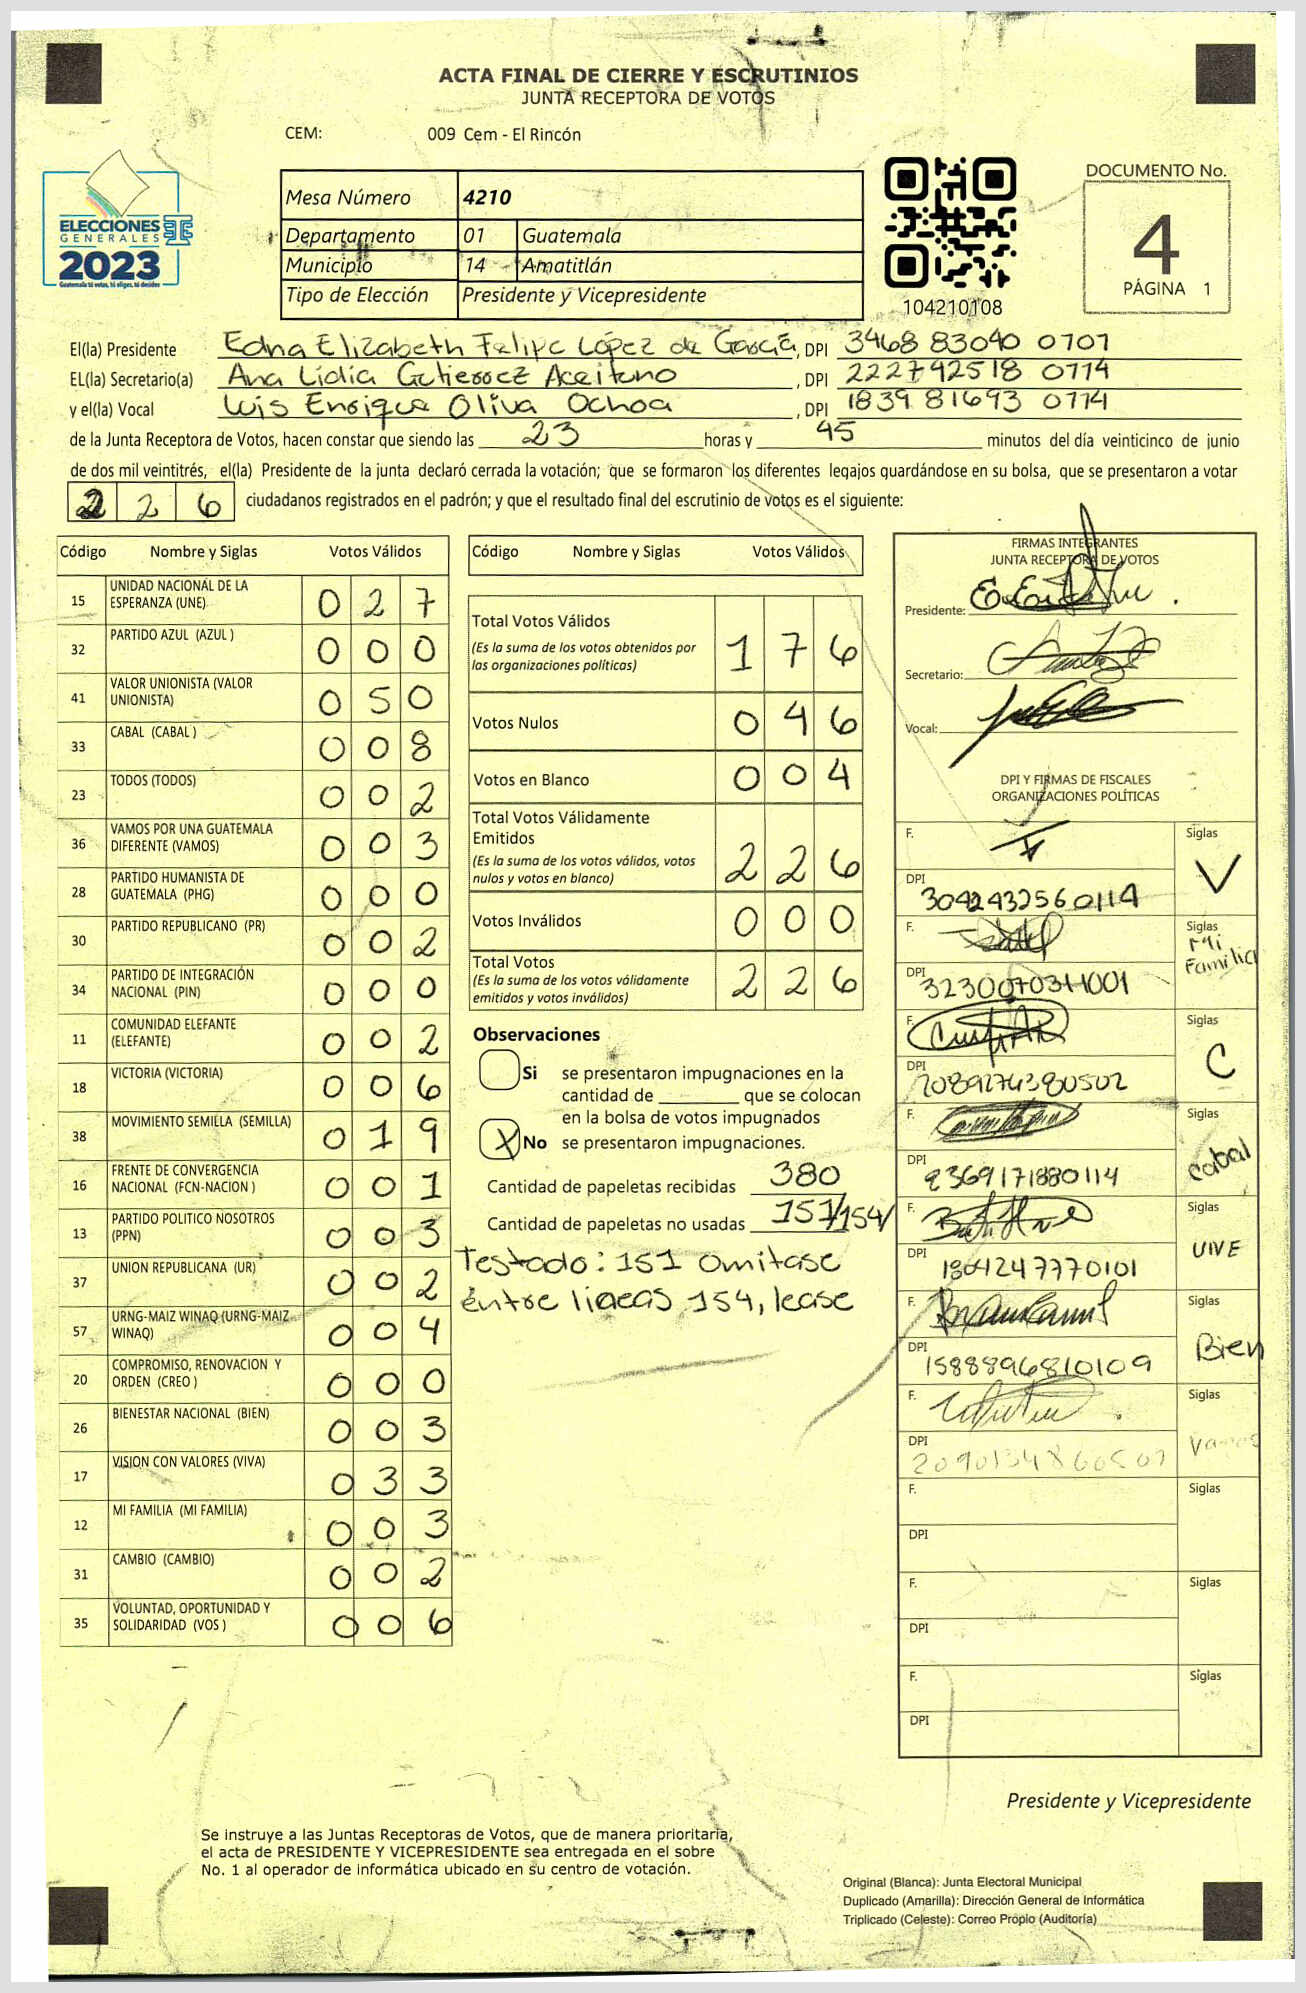 ACTA FINAL DE CIERRE Y ESCRUTINIOS
JUNTA RECEPTORA DE VOTOS
CEM: 009 Cem - El Rincón
ELECCIONES
GENERALES
2023
Guatemala tú votas, tú eliges, tú decides
Mesa Número 4210
Departamento 01 Guatemala
Municipio 14 Amatitlán
Tipo de Elección Presidente y Vicepresidente
104210108
DOCUMENTO No.
4
PÁGINA 1
El(la) Presidente Edna Elizabeth Felipe López de García, DPI 3468 83040 0707
EL(la) Secretario(a) Ana Lidia Gutierrez Aceituno, DPI 222792518 0114
y el(la) Vocal Luis Enrique Oliva Ochoa, DPI 1839 81693 0114
de la Junta Receptora de Votos, hacen constar que siendo las 23 horas y 45 minutos del día veinticinco de junio
de dos mil veintitrés, el(la) Presidente de la junta declaró cerrada la votación; que se formaron los diferentes legajos guardándose en su bolsa, que se presentaron a votar
2 2 6 ciudadanos registrados en el padrón; y que el resultado final del escrutinio de votos es el siguiente:
Código Nombre y Siglas Votos Válidos
15 UNIDAD NACIONAL DE LA ESPERANZA (UNE) 0 2 7
32 PARTIDO AZUL (AZUL ) 0 0 0
41 VALOR UNIONISTA (VALOR UNIONISTA) 0 5 0
33 CABAL (CABAL ) 0 0 8
23 TODOS (TODOS) 0 0 2
36 VAMOS POR UNA GUATEMALA DIFERENTE (VAMOS) 0 0 3
28 PARTIDO HUMANISTA DE GUATEMALA (PHG) 0 0 0
30 PARTIDO REPUBLICANO (PR) 0 0 2
34 PARTIDO DE INTEGRACIÓN NACIONAL (PIN) 0 0 0
11 COMUNIDAD ELEFANTE (ELEFANTE) 0 0 2
18 VICTORIA (VICTORIA) 0 0 6
38 MOVIMIENTO SEMILLA (SEMILLA) 0 1 9
16 FRENTE DE CONVERGENCIA NACIONAL (FCN-NACION ) 0 0 1
13 PARTIDO POLITICO NOSOTROS (PPN) 0 0 3
37 UNION REPUBLICANA (UR) 0 0 2
57 URNG-MAIZ WINAQ (URNG-MAIZ WINAQ) 0 0 4
20 COMPROMISO, RENOVACION Y ORDEN (CREO ) 0 0 0
26 BIENESTAR NACIONAL (BIEN) 0 0 3
17 VISION CON VALORES (VIVA) 0 3 3
12 MI FAMILIA (MI FAMILIA) 0 0 3
31 CAMBIO (CAMBIO) 0 0 2
35 VOLUNTAD, OPORTUNIDAD Y SOLIDARIDAD (VOS ) 0 0 6
Código Nombre y Siglas Votos Válidos
Total Votos Válidos 1 7 6
(Es la suma de los votos obtenidos por
las organizaciones políticas)
Votos Nulos 0 4 6
Votos en Blanco 0 0 4
Total Votos Válidamente
Emitidos 2 2 6
(Es la suma de los votos válidos, votos
nulos y votos en blanco)
Votos Inválidos 0 0 0
Total Votos 2 2 6
(Es la suma de los votos válidamente
emitidos y votos inválidos)
Observaciones
Si se presentaron impugnaciones en la
cantidad de ________ que se colocan
en la bolsa de votos impugnados
X No se presentaron impugnaciones.
Cantidad de papeletas recibidas 380
Cantidad de papeletas no usadas 151/154/
Testado: 151 omitase
entre lineas 154, lease
FIRMAS INTEGRANTES
JUNTA RECEPTORA DE VOTOS
Presidente:
Secretario:
Vocal:
DPI Y FIRMAS DE FISCALES
ORGANIZACIONES POLÍTICAS
F. Siglas V
DPI 3042432560114
F. Siglas Mi Familia
DPI 3230070311001
F. Siglas C
DPI 2089274380502
F. Siglas Cabal
DPI 2369171880114
F. Siglas VIVE
DPI 1804247770101
F. Siglas Bien
DPI 1588896810109
F. Siglas Vamos
DPI
F. Siglas
DPI
F. Siglas
DPI
F. Siglas
DPI
Presidente y Vicepresidente
Se instruye a las Juntas Receptoras de Votos, que de manera prioritaria,
el acta de PRESIDENTE Y VICEPRESIDENTE sea entregada en el sobre
No. 1 al operador de informática ubicado en su centro de votación.
Original (Blanca): Junta Electoral Municipal
Duplicado (Amarilla): Dirección General de Informática
Triplicado (Celeste): Correo Propio (Auditoría)